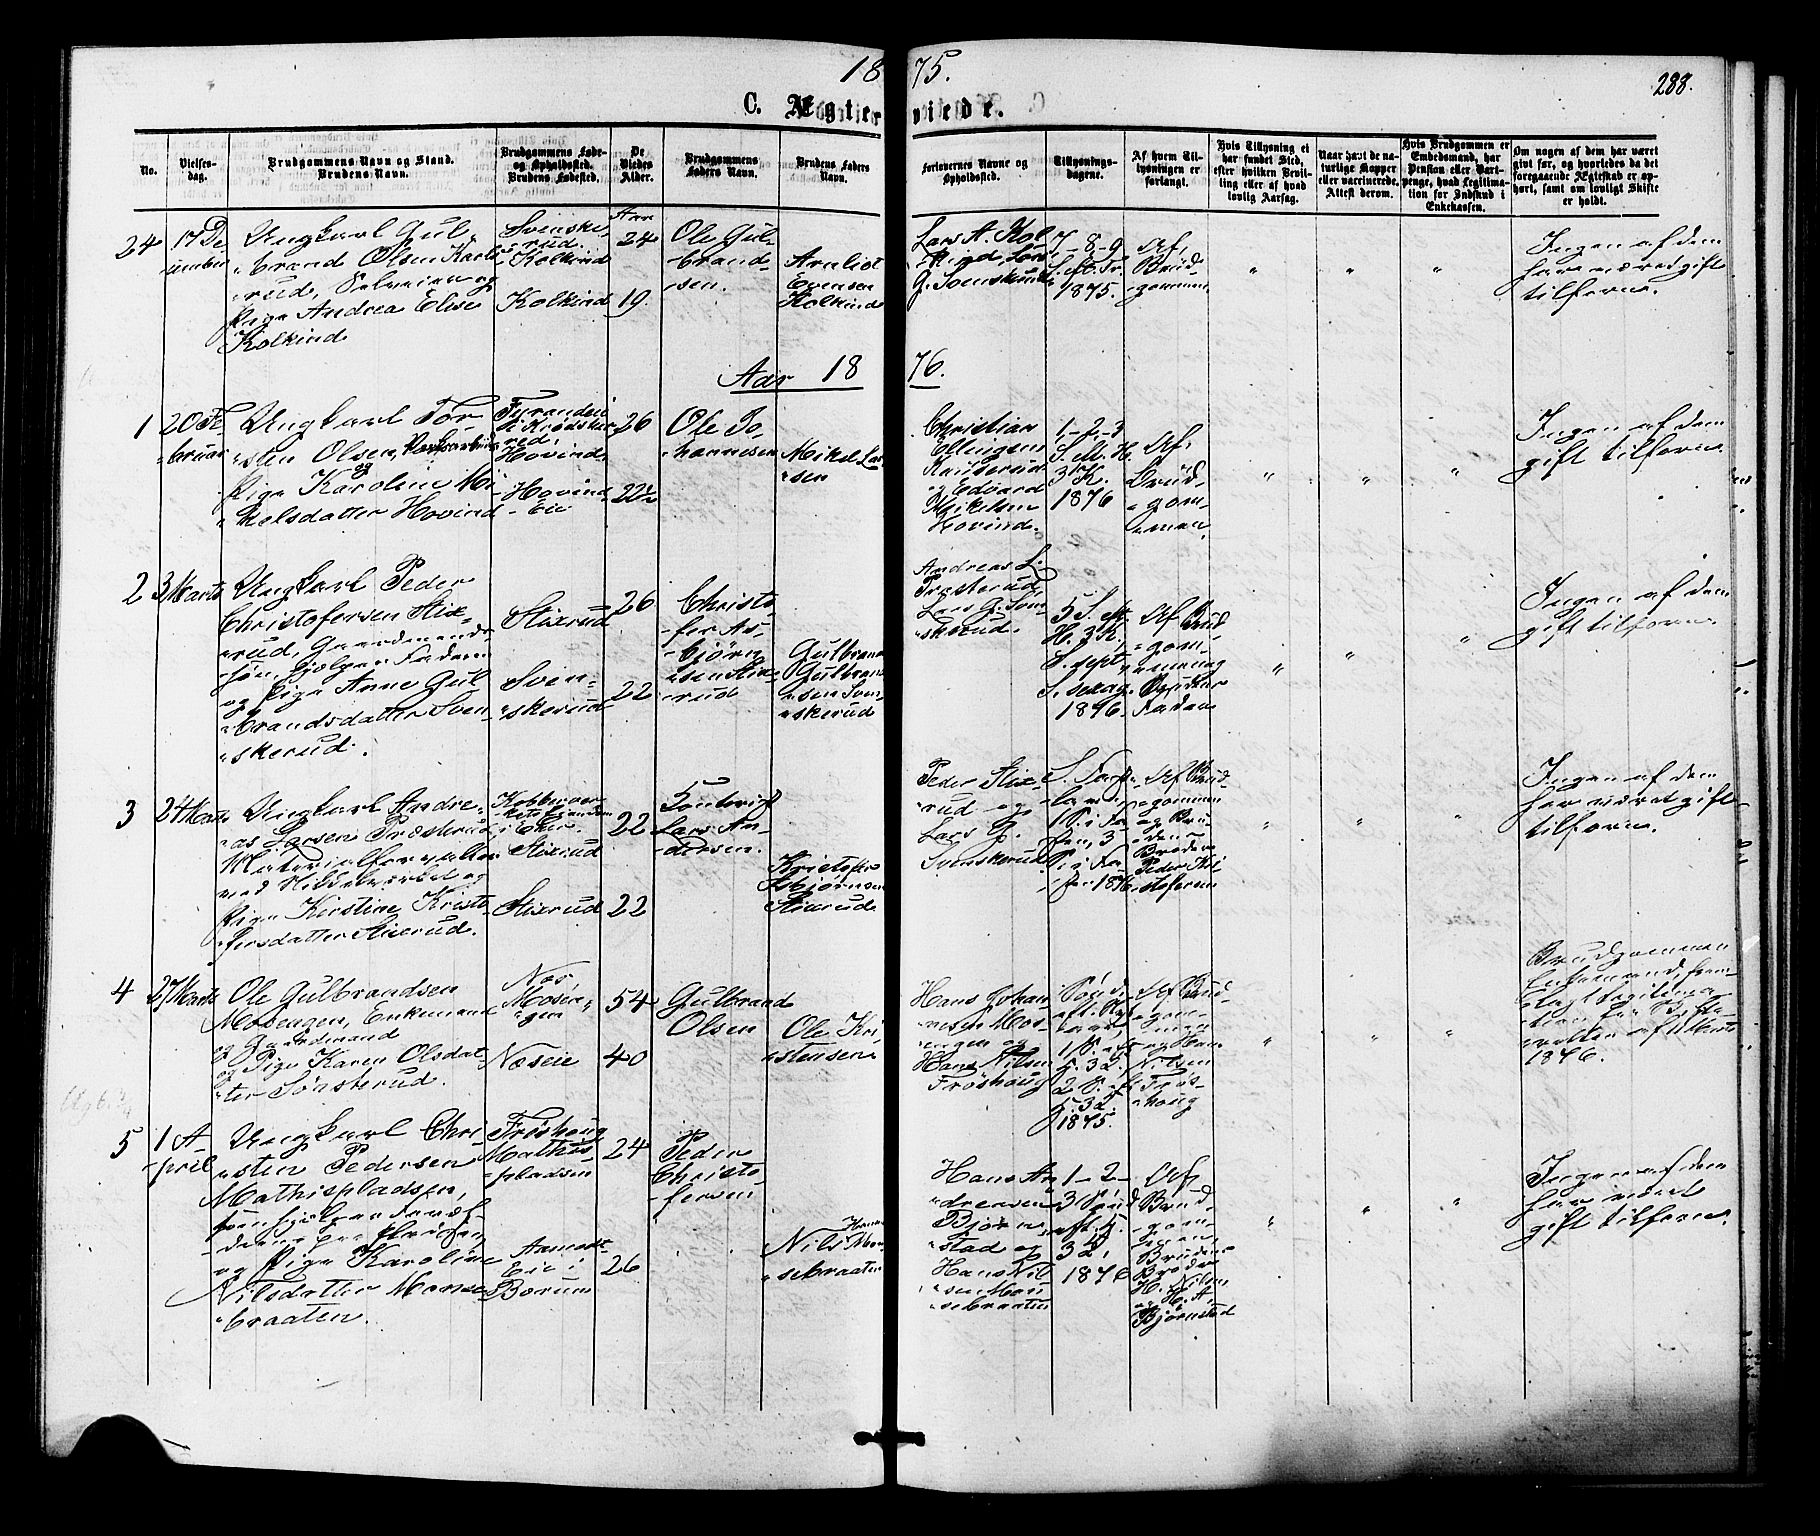 1875.
288.
C. Ægtevviede.
No.
Vielses-
dag.
Brudgommens Navn og Stand.
Brudens Navn.
Brudgommens Føde-
og Opholdssted.
Brudens Fødested.
De
Viedes
Alder.
Brudgommens
Faders Navn.
Brudens Faders
Navn.
Forlovernes Navne og
Opholdssted.
Tillysnings-
dagene.
Af hvem Til-
lysningen er
forlangt.
Hvis Tillysning ei
har fundet Sted,
efter hvilken Bevil-
ling eller af hvad
lovlig Aarsag.
Naar havt de na-
turlige Kopper
eller vaccinerede.
Attest derom.
Hvis Brudgommen er
Embedsmand, har
Pension eller Vart-
penge, hvad Legitima-
tion for Indskud i
Enkekassen.
Om nogen af dem har været
givt før, og hvorledes da det
foregaaende Ægteskab er op-
hørt, samt om lovligt Skifte
er holdt.
24
17 De
cember
Ungkarl Gul-
brand Olsen Karls
rud, Selveier og
Pige Andrea Elise
Kolkind
Svenske-
rud.
Kolkind
Kolkind
Aar
24
19.
Ole Gul-
brand-
sen.
Arnliot
Evensen
Kolkind
Lars A. Kol-
kind, Lars
G. Svenskerud
7-8-9
S. eft. Tr.
1875.
Af
Brud-
gommen
Ingen af dem
har været gift
tilforn.
Aar 1876.
1
20 Fe-
bruar
Ungkarl Tor-
sten Olsen,
og
Pige Karoline Mi-
kelsdatter Hovind
i Krødshe-
red.
Hovind
Hovind-
Eie
26
22½
Ole Jo-
hannesen
Mikel Lar-
sen
Christian
Ellingsen
og Edvard
Mikelsen
Hovind.
1-2-3
S. M. H.
3 K.
1876
Af
Brud-
gom-
men.
Ingen af dem
gift tilforn.
2
3 Marts
Ungkarl Peder
Christofersen Stix-
rud, Gaardmands-
søn, hjelper Faderen
og Pige Anne Gul-
brandsdatter Sven-
skerud.
Stixrud
Sven-
skerud
26
22
Christo-
fer As-
bjørn-
sen Stix-
rud
Gulbrand
Gulbrand-
sen Sven-
skerud
Andreas L.
Præsterud,
Lars G. Sven-
skerud.
5 S. eft.
H. 3 K.
S. sept.
S. sexag.
1876.
Af Brud-
gom-
men og
Brudens
Fader
Ingen af dem
gift tilforn.
3
24 Marts
Ungkarl Andre-
as Larsen Præsterud
Materialforvalter
ved
og
Pige Kirstine Kristo-
fersdatter Stixrud.
Kobberver-
i Eker.
Stixrud
Stixrud
22
22
Lars An-
dersen.
Kristofer
Asbjørnsen
Stixrud
Peder Stix-
rud og
Lars G.
Svenskerud
S. Fast-
lavn
1 S. i Fa-
sten, 3
S. i Fa-
sten 1876.
Af Brud-
gommen
og Bru-
dens
Broder
Peder Kri-
stofersen
Ingen af dem
har været gift
tilforn.
4
27 Marts
Ole Gulbrandsen
Mosengen, Enkemand
og Gaardmand
og Pige Karen Olsdat-
ter Sønsterud.
Nor,
Mosen-
gen
Næseie
54
40
Gulbrand
Olsen
Ole Kri-
stensen
Hans Johan-
nesen Mos-
engen og
Hans Nilsen
Frøshoug
1875.
Af Brud-
gom-
men
og Hans
Nilsen
Frøs-
houg
Brudgommen
Enkemand, frem-
lagt Legitima-
tion fra Skifte-
retten af Marts
1876.
5
1 A-
pril
Ungkarl Chri-
sten Pedersen
Mathispladsen,
og Pige Karoline
Nilsdatter Monse-
braaten.
Frøshoug
Mathis-
pladsen
Eie i
Bærum
24
26
Peder
Christo-
fersen
Nils Mon-
sebraaten
Hans An-
dersen
Bjørn-
stad og
Hans Nil-
sen Mon-
sebraaten
1-2-
3 Sønd.
eft.
1876
Af
Brud-
gom-
men,
Brudens
Broder
H. Nilsen
og H. A.
Bjørnstad
Ingen af dem
har været
gift tilforn.